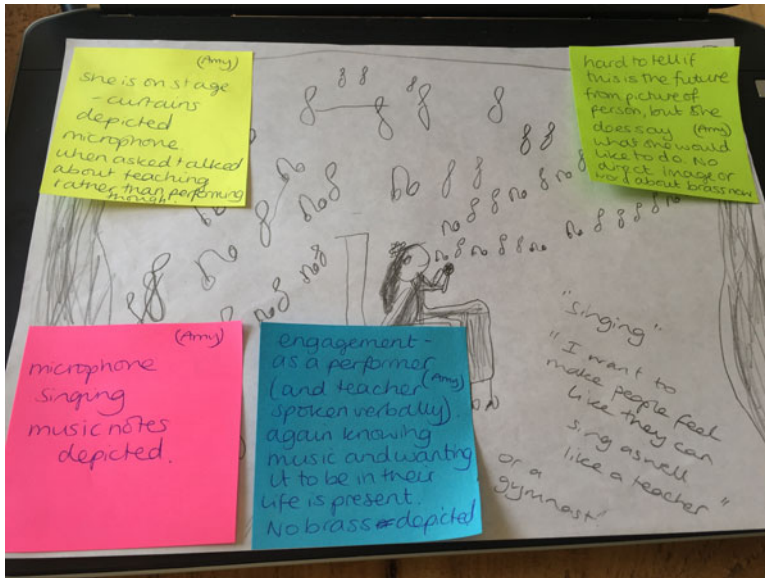 (Amy)
she is on stage
- curtains
depicted
microphone.
when asked talked
about teaching
rather than performing
thought.
hard to tell if
this is the future
from picture of
person, but she
does say (Amy)
what she would
like to do. No
direct image or
word about brass now
(Amy)
microphone
singing
music notes
depicted.
engagement -
as a performer
(and teacher (Amy)
spoken verbally).
again knowing
music and wanting
it to be in their
life is present.
No brass depicted
"singing"
"I want to
make people feel
like they can
sing aswell
like a teacher"
or a
gymnast"